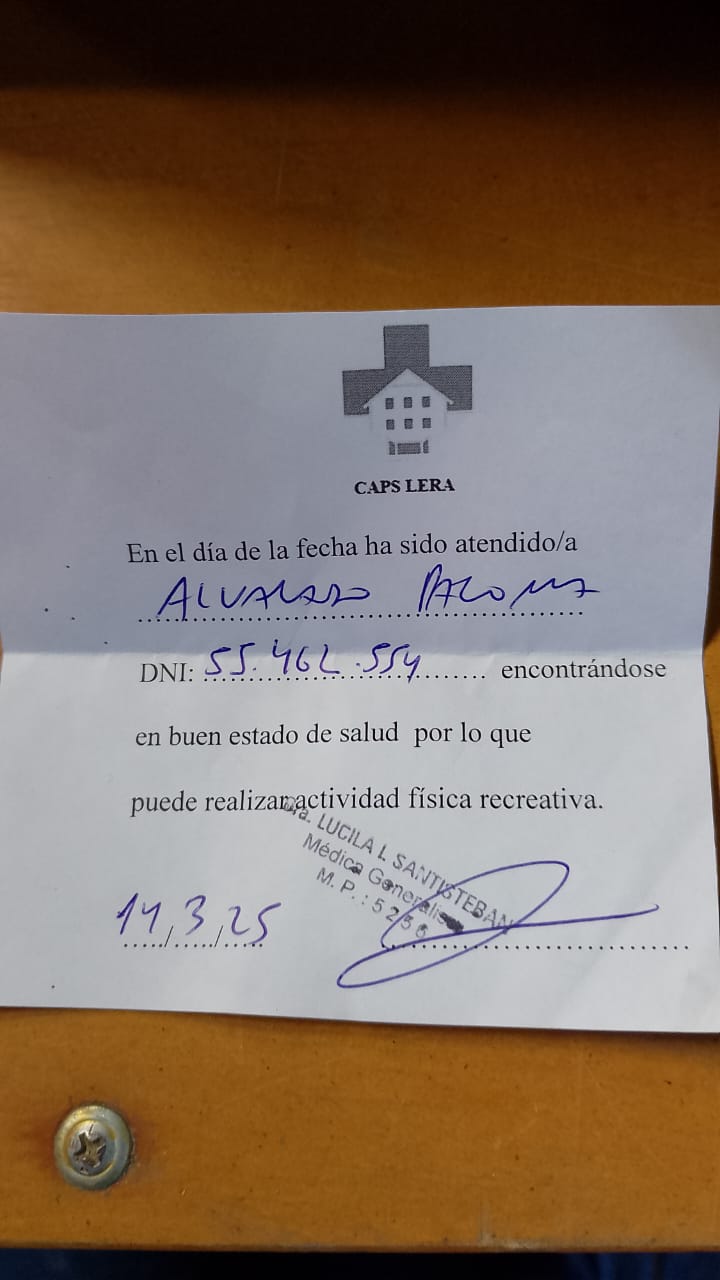 CAPS LERA
En el día de la fecha ha sido atendido/a
ALVARADO PALOMA
DNI: 55.462.554 encontrándose
en buen estado de salud por lo que
puede realizar actividad física recreativa.
Dra. LUCILA I. SANTISTEBAN
Médica Generalista
M. P. : 5256
14/3/25